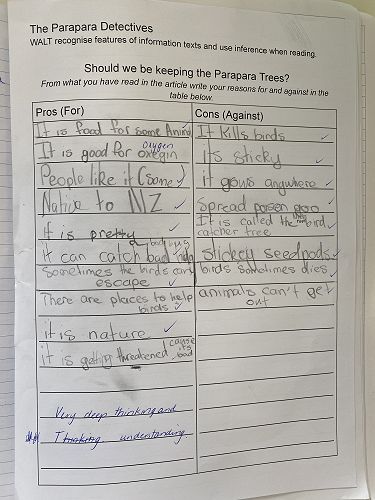 The Parapara Detectives
WALT recognise features of information texts and use inference when reading.
Should we be keeping the Parapara Trees?
From what you have read in the article write your reasons for and against in the
table below.
Pros (For)
It is food for some Anima
oxygen
It is good for oxegin
People like it (some)
Native to NZ
it is pretty
bad bugs
it can catch bad
Sometimes the birds can
escape
There are places to help
birds
it is nature
it is geting threatened cause
its
bad
Very deep thinking and
Thinking understanding.
Cons (Against)
It kills birds
its sticky
it gows anywhere
Spread poisen goo
It is called the bird
catcher tree
stickey seedpods
birds sometimes dies
animals can't get
out